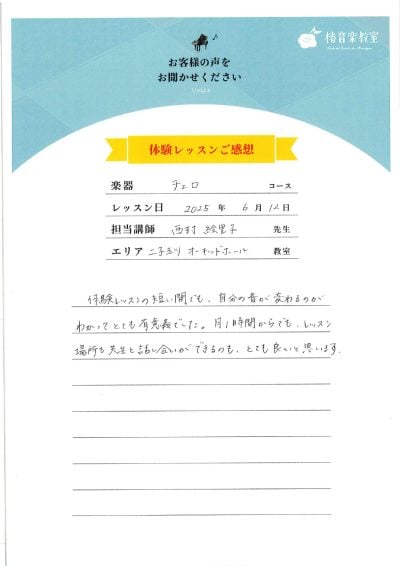 椿音楽教室
お客様の声を
お聞かせください
Voice
体験レッスンご感想
楽器 チェロ コース
レッスン日 2025年 6月12日
担当講師 西村 絵里子 先生
エリア 二子玉川 オーキッドホール 教室
体験レッスンの短い間でも、自分の音が変わるのが
わかってとても有意義でした。月1時間からでも、レッスン
場所も先生と話し合いができるのも、とても良いと思います。